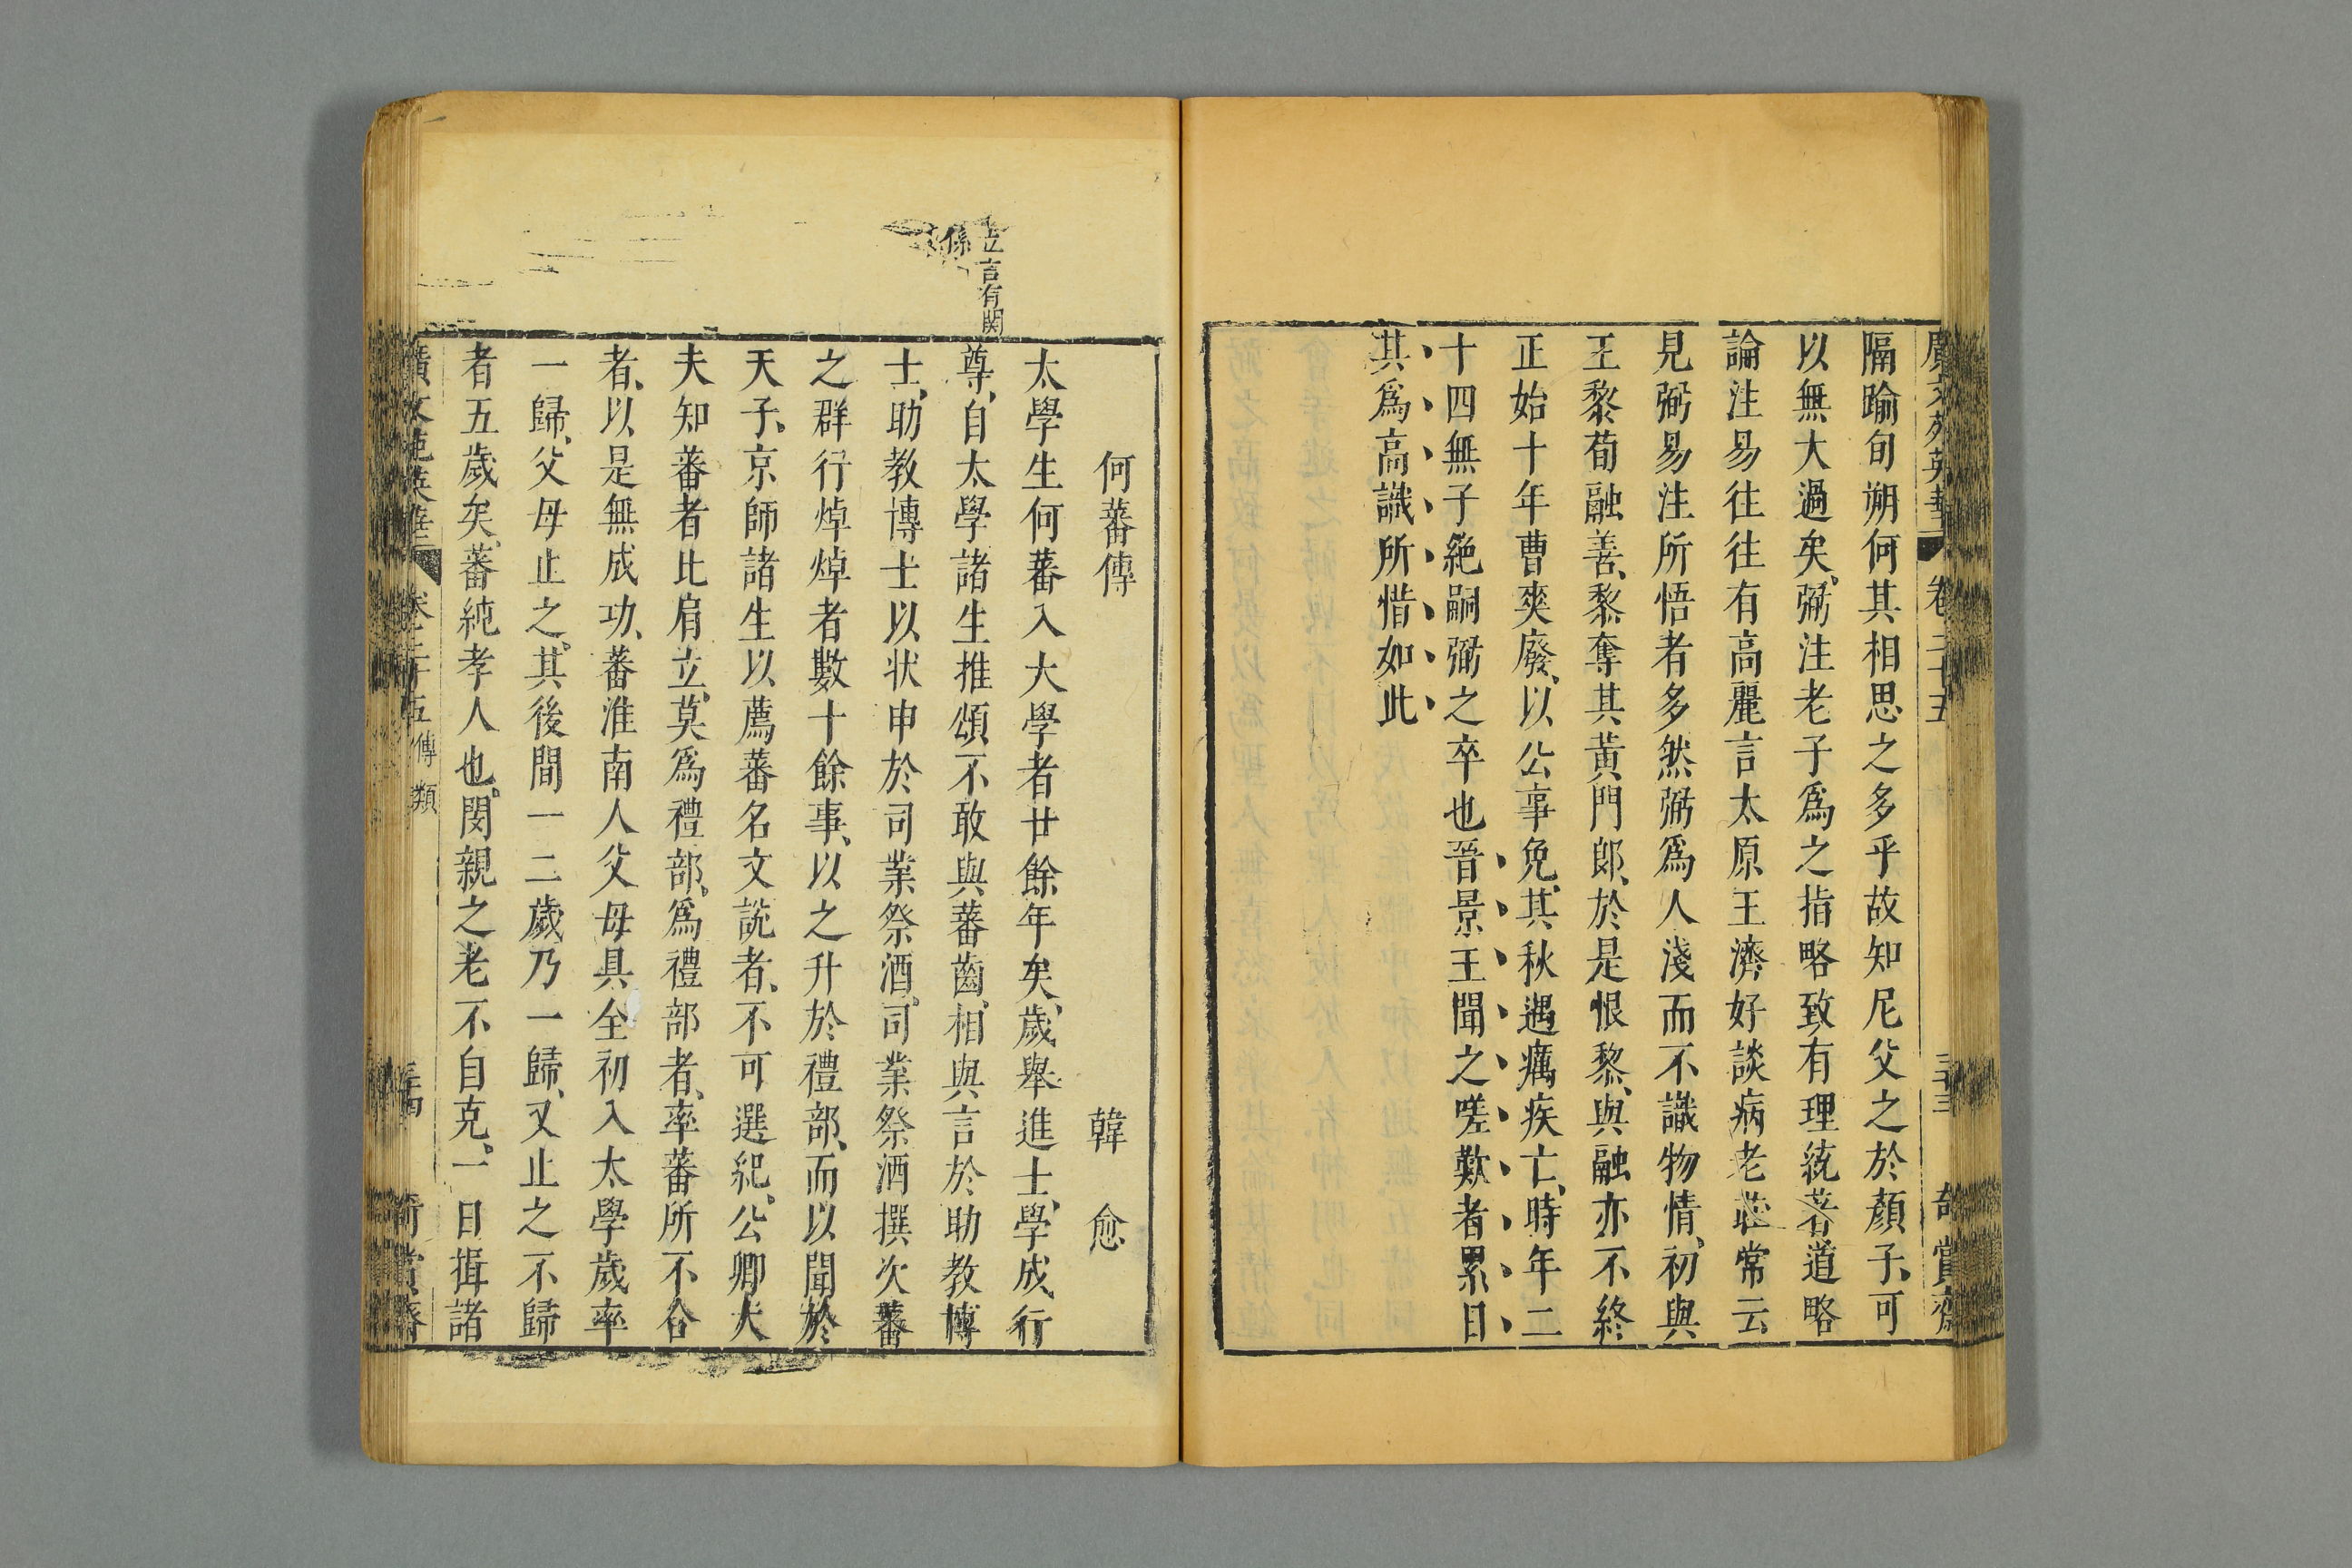 廣文苑英華
卷二十五
三十三
奇賞齋
隔踰旬朔何其相思之多乎故知尼父之於顏子可
以無大過矣弼注老子爲之指略致有理統著道略
論注易往往有高麗言太原王濟好談病老莊常云
見弼易注所悟者多然弼爲人淺而不識物情初與
王黎荀融善黎奪其黃門郎於是恨黎與融亦不終
正始十年曹爽廢以公事免其秋遇癘疾亡時年二
十四無子絶嗣弼之卒也晉景王聞之嗟歎者累日
其爲高識所惜如此
立言有関
係
何蕃傳 韓愈
太學生何蕃入大學者廿餘年矣歲舉進士學成行
尊自太學諸生推頌不敢與蕃齒相與言於助教博
士助教博士以状申於司業祭酒司業祭酒撰次蕃
之群行焯焯者數十餘事以之升於禮部而以聞於
天子京師諸生以薦蕃名文說者不可選紀公卿大
夫知蕃者比肩立莫爲禮部爲禮部者率蕃所不合
者以是無成功蕃淮南人父母具全初入太學歲率
一歸父母止之其後間一二歲乃一歸又止之不歸
者五歲矣蕃純孝人也閔親之老不自克一日揖諸
廣文苑英華
卷二十五
傳類
三十四
奇賞齋